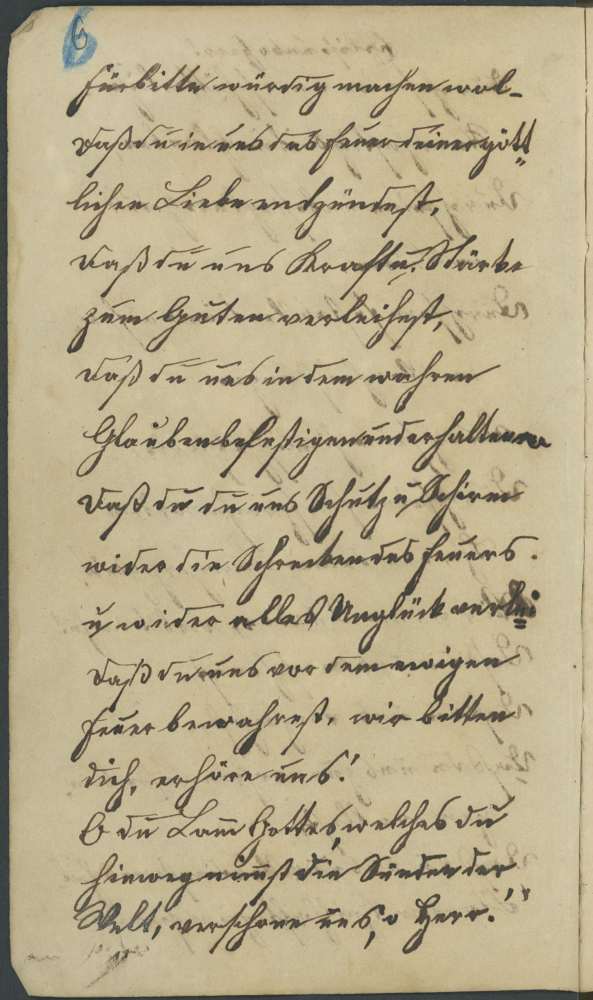 6
Fürbitte würdig machen wol-
Daß du in uns das Feuer deiner gött„
lichen Liebe entzündest,
Daß du uns Kraft u. Stärke
zum Guten verleihest,
Daß du uns in dem wahren
Glauben befestigen und erhalten
Daß du du uns Schutz u. Schirm
wider die Schrecken des Feuers.
u wider alles Unglück verlei
Daß du uns vor dem ewigen
Feuer bewahrest, wir bitten
dich, erhöre uns!
O du Lam̄ Gottes, welches du
hinweg nim̄st die Sünden der
Welt, verschone uns, o Herr!"